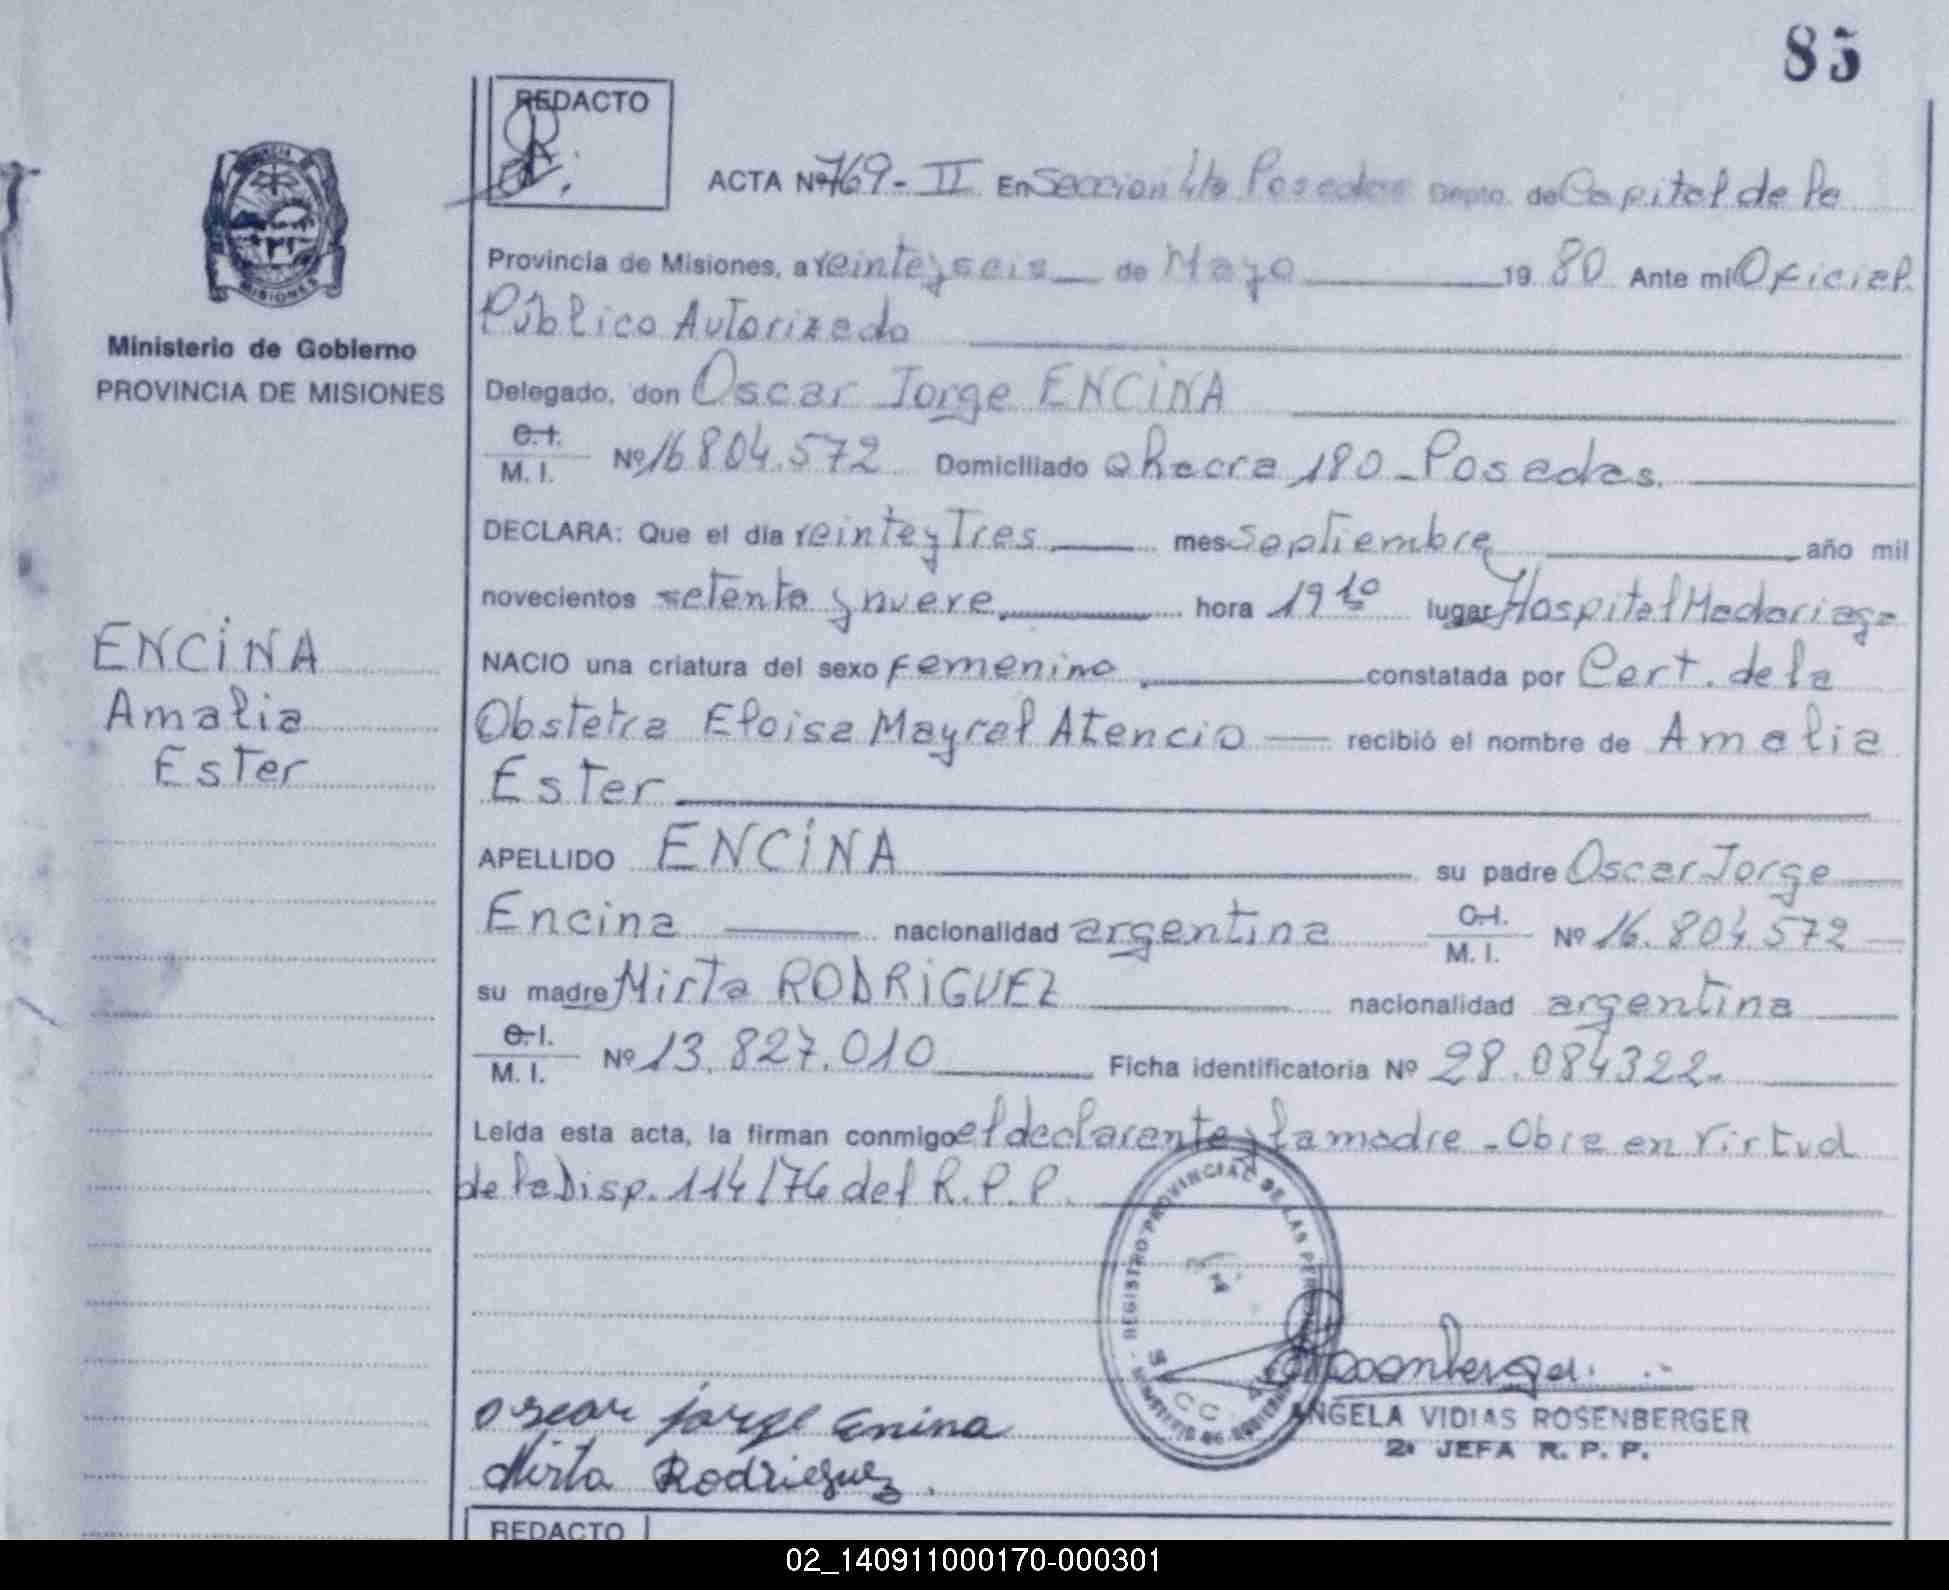 85
REDACTO
ACTA Nº 769-II En Seccion 4to Posadas Depto. de Capital de la
Provincia de Misiones, a veinteyseis de Mayo 19 80 Ante mi Oficial
Público Autorizado
Delegado, don Oscar Jorge ENCINA
C.I.
M. I. Nº 16804.572 Domiciliado chacra 180 - Posadas.
DECLARA: Que el día veinteytres mes septiembre año mil
novecientos setenta y nueve hora 19 10 lugar Hospital Madariaga
NACIO una criatura del sexo femenino constatada por Cert. de la
Obstetra Eloisa Mayral Atencio recibió el nombre de Amalia
Ester
APELLIDO ENCINA su padre Oscar Jorge
Encina nacionalidad argentina C.I. M. I. Nº 16.804572
su madre Mirta RODRIGUEZ nacionalidad argentina
C.I.
M. I. Nº 13.827.010 Ficha identificatoria Nº 28.084322.
Leída esta acta, la firman conmigo el declarante y la madre - Obra en virtud
de la Disp. 114/76 del R.P.P.
PROVINCIA DE
MISIONES
Ministerio de Gobierno
PROVINCIA DE MISIONES
ENCINA
Amalia
Ester
REGISTRO PROVINCIAL DE LAS PERSONAS
MINISTERIO DE GOBIERNO
Rosenberger
ANGELA VIDIAS ROSENBERGER
2ª JEFA R. P. P.
oscar jorge Enina
Mirta Rodrieguez.
REDACTO
02_140911000170-000301